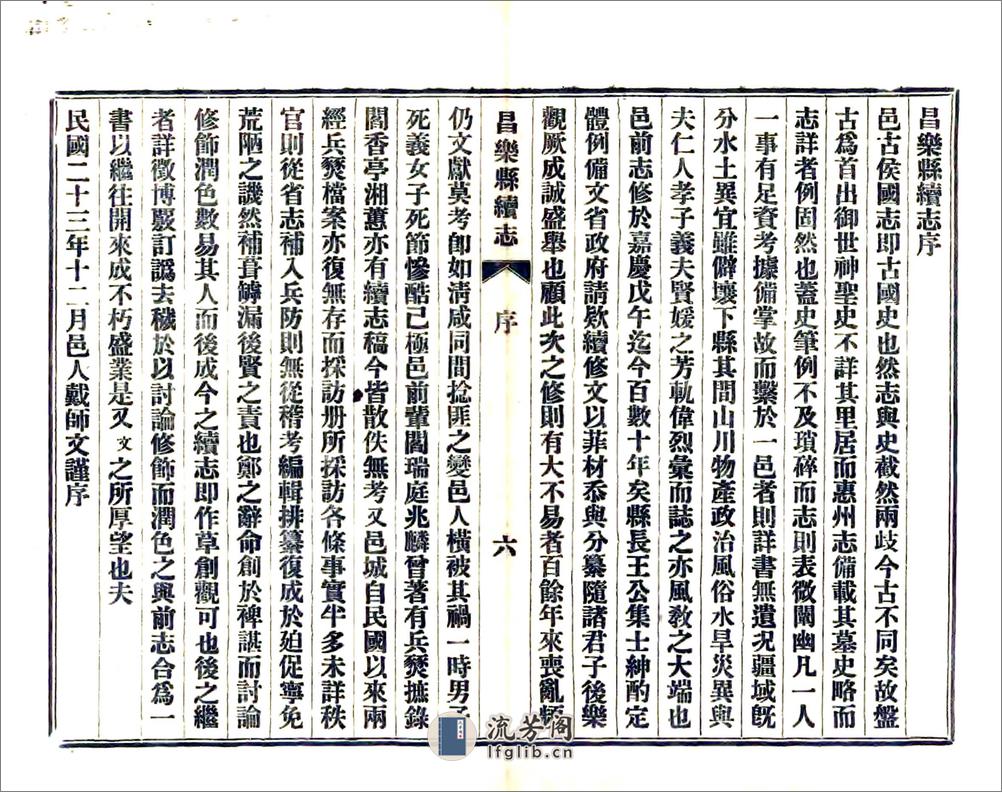 昌樂縣續志序
邑古侯國志即古國史也然志與史截然兩歧今古不同矣故盤
古爲首出御世神聖史不詳其里居而惠州志備載其墓史略而
志詳者例固然也蓋史筆例不及瑣碎而志則表微闡幽凡一人
一事有足資考據備掌故而繫於一邑者則詳書無遺况疆域旣
分水土異宜雖僻壤下縣其間山川物產政治風俗水旱災異與
夫仁人孝子義夫賢媛之芳軌偉烈彙而誌之亦風敎之大端也
邑前志修於嘉慶戊午迄今百數十年矣縣長王公集士紳酌定
體例備文省政府請欵續修文以菲材忝與分纂隨諸君子後樂
觀厥成誠盛舉也顧此次之修則有大不易者百餘年來喪亂頻
昌樂縣續志 序 六
仍文獻莫考卽如淸咸同間捻匪之變邑人橫被其禍一時男子
死義女子死節慘酷已極邑前輩閻瑞庭兆麟曾著有兵燹摭錄
閻香亭湘蕙亦有續志稿今皆散佚無考又邑城自民國以來兩
經兵燹檔案亦復無存而採訪册所採訪各條事實半多未詳秩
官則從省志補入兵防則無從稽考編輯排纂復成於廹促寧免
荒陋之譏然補葺罅漏後賢之責也鄭之辭命創於裨諶而討論
修飾潤色數易其人而後成今之續志即作草創觀可也後之繼
者詳徵博嚴訂譌去穢於以討論修飾而潤色之與前志合爲一
書以繼往開來成不朽盛業是又文之所厚望也夫
民國二十三年十二月邑人戴師文謹序
流芳阁
lfglib.cn